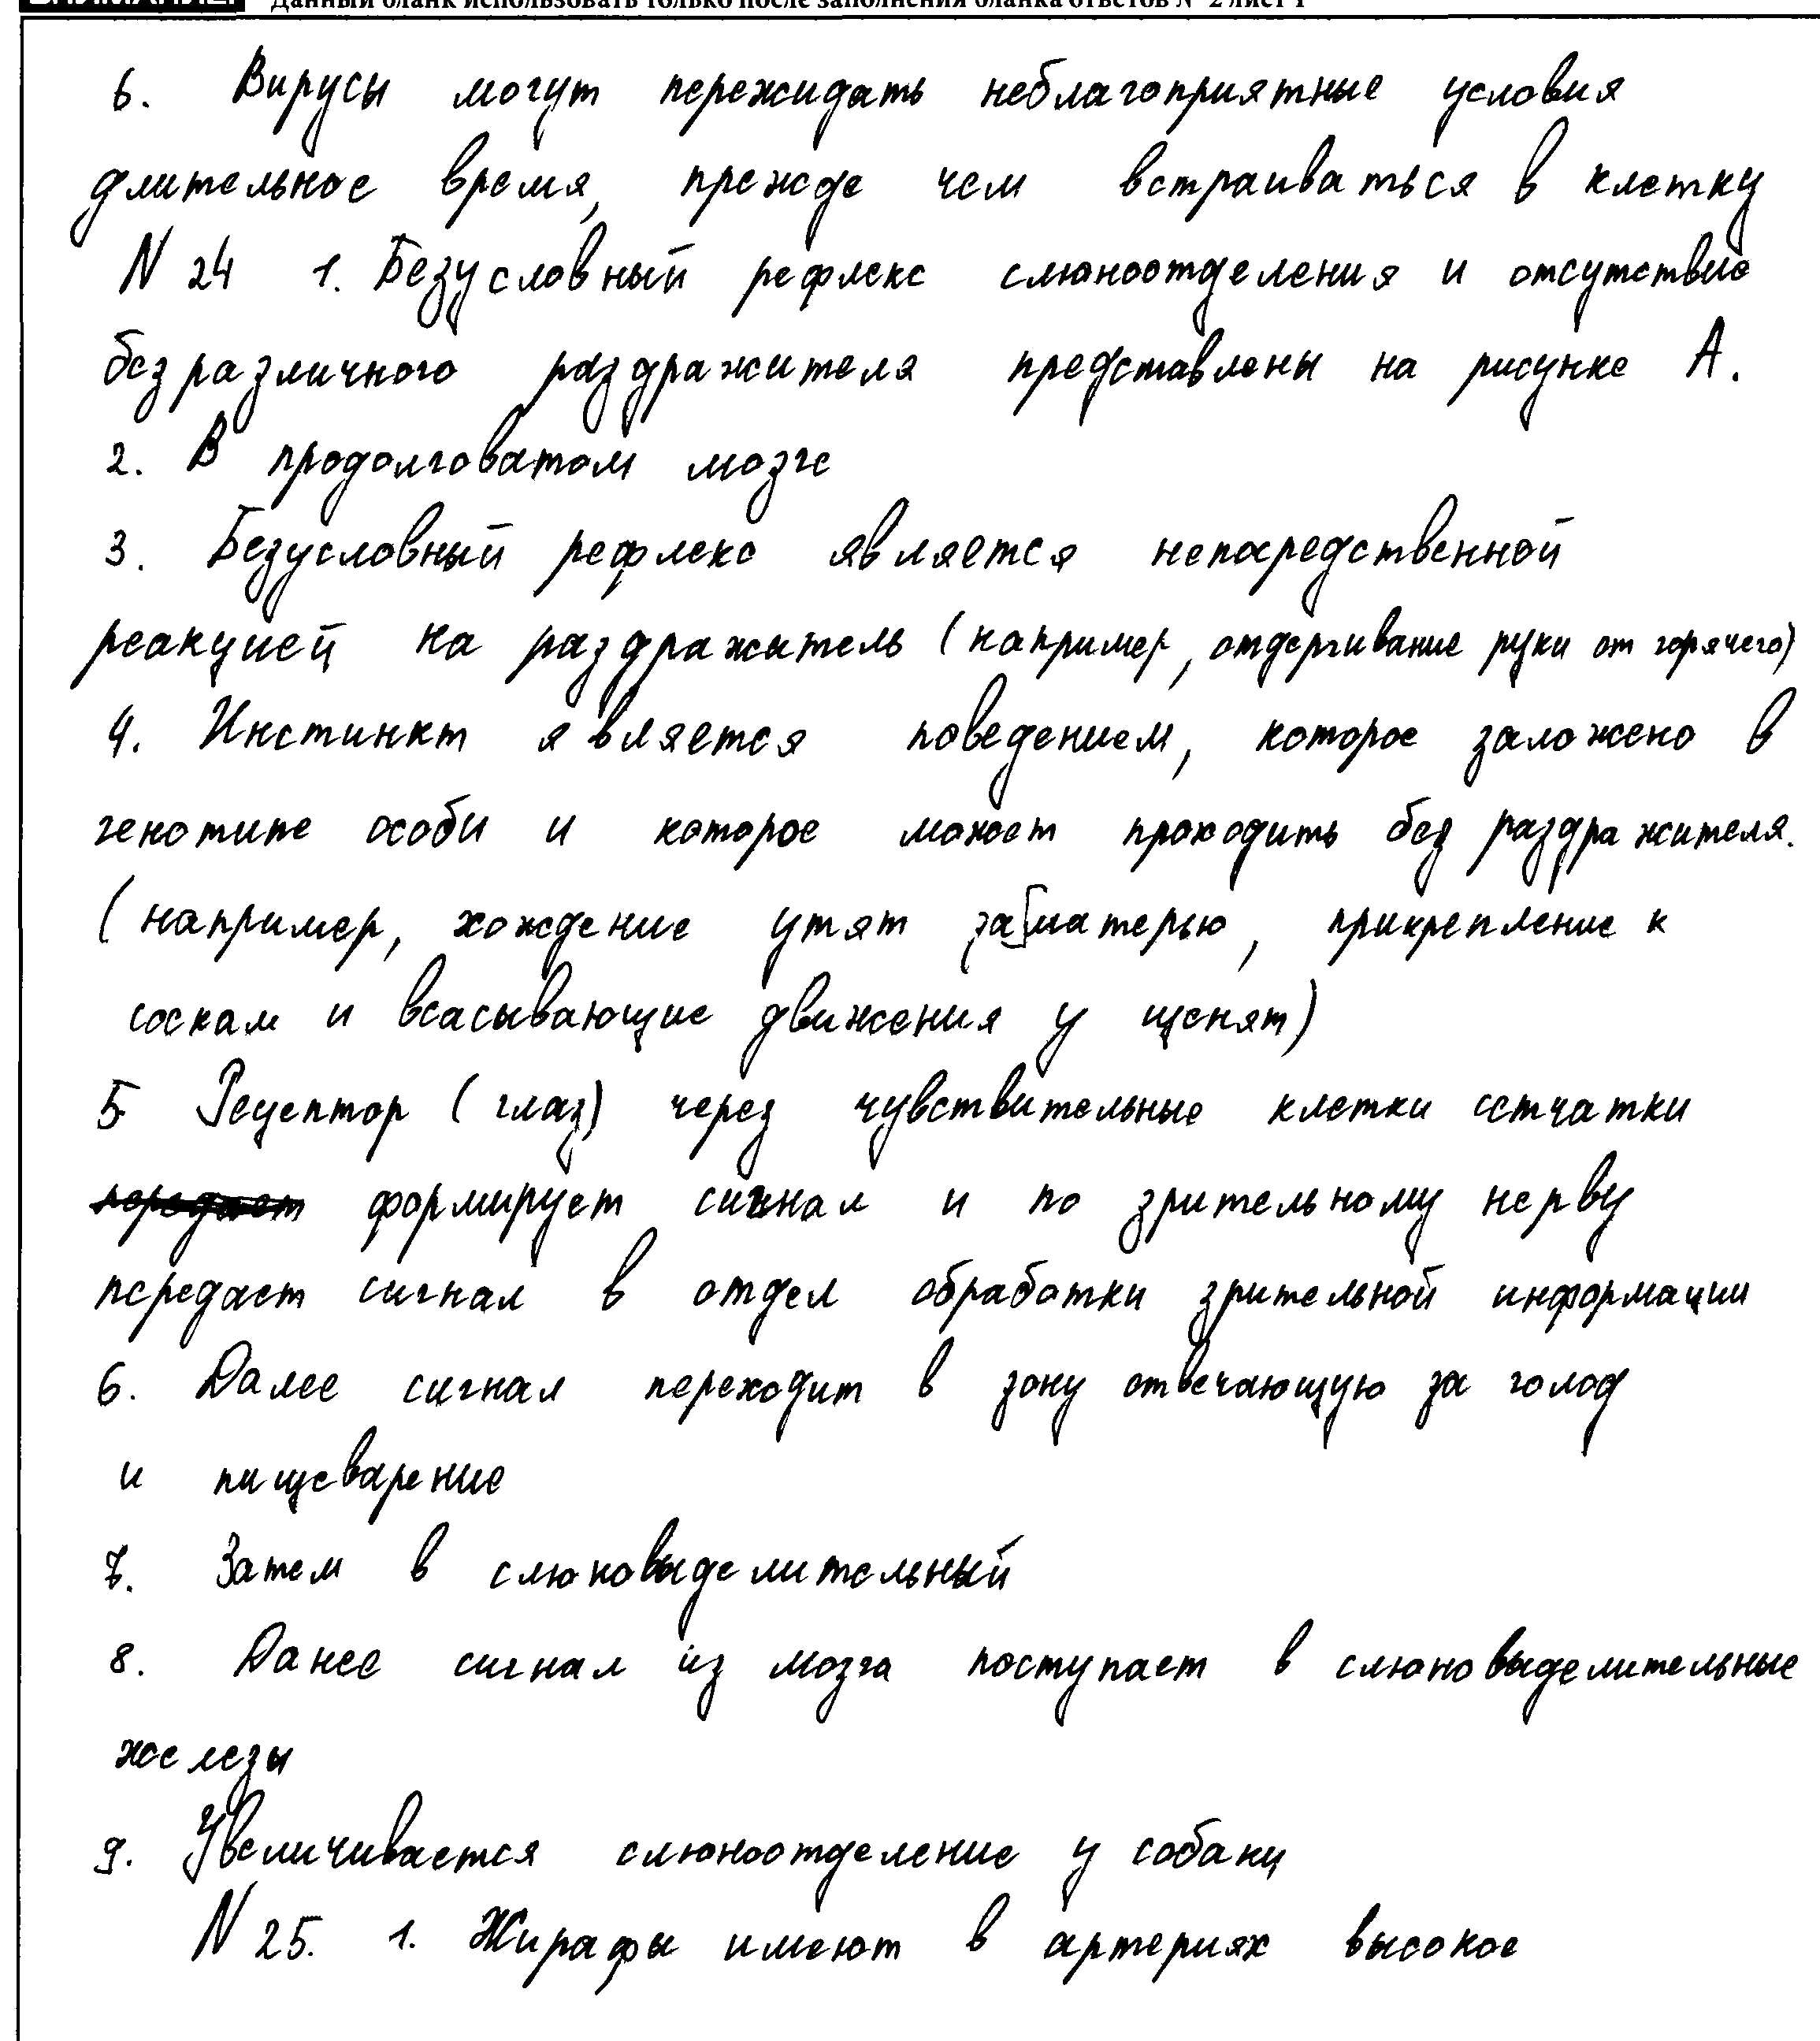 Данный бланк использовать только после заполнения бланка ответов № 2 лист 1
6. Вирусы могут пережидать неблагоприятные условия
длительное время, прежде чем встраиваться в клетку
N 24 1. Безусловный рефлекс слюноотделения и отсутствие
безразличного раздражителя представлены на рисунке А.
2. В продолговатом мозге
3. Безусловный рефлекс является непосредственной
реакцией на раздражитель (например, отдергивание руки от горячего)
4. Инстинкт является поведением, которое заложено в
генотипе особи и которое может проходить без раздражителя.
(например, хождение утят за матерью, прикрепление к
соскам и всасывающие движения у щенят)
5 Рецептор (глаз) через чувствительные клетки сетчатки
передает формирует сигнал и по зрительному нерву
передает сигнал в отдел обработки зрительной информации
6. Далее сигнал переходит в зону отвечающую за голод
и пищеварение
7. Затем в слюновыделительный
8. Данее сигнал из мозга поступает в слюновыделительные
железы
9. Увеличивается слюноотделение у собаки
N 25. 1. Жирафы имеют в артериях высокое